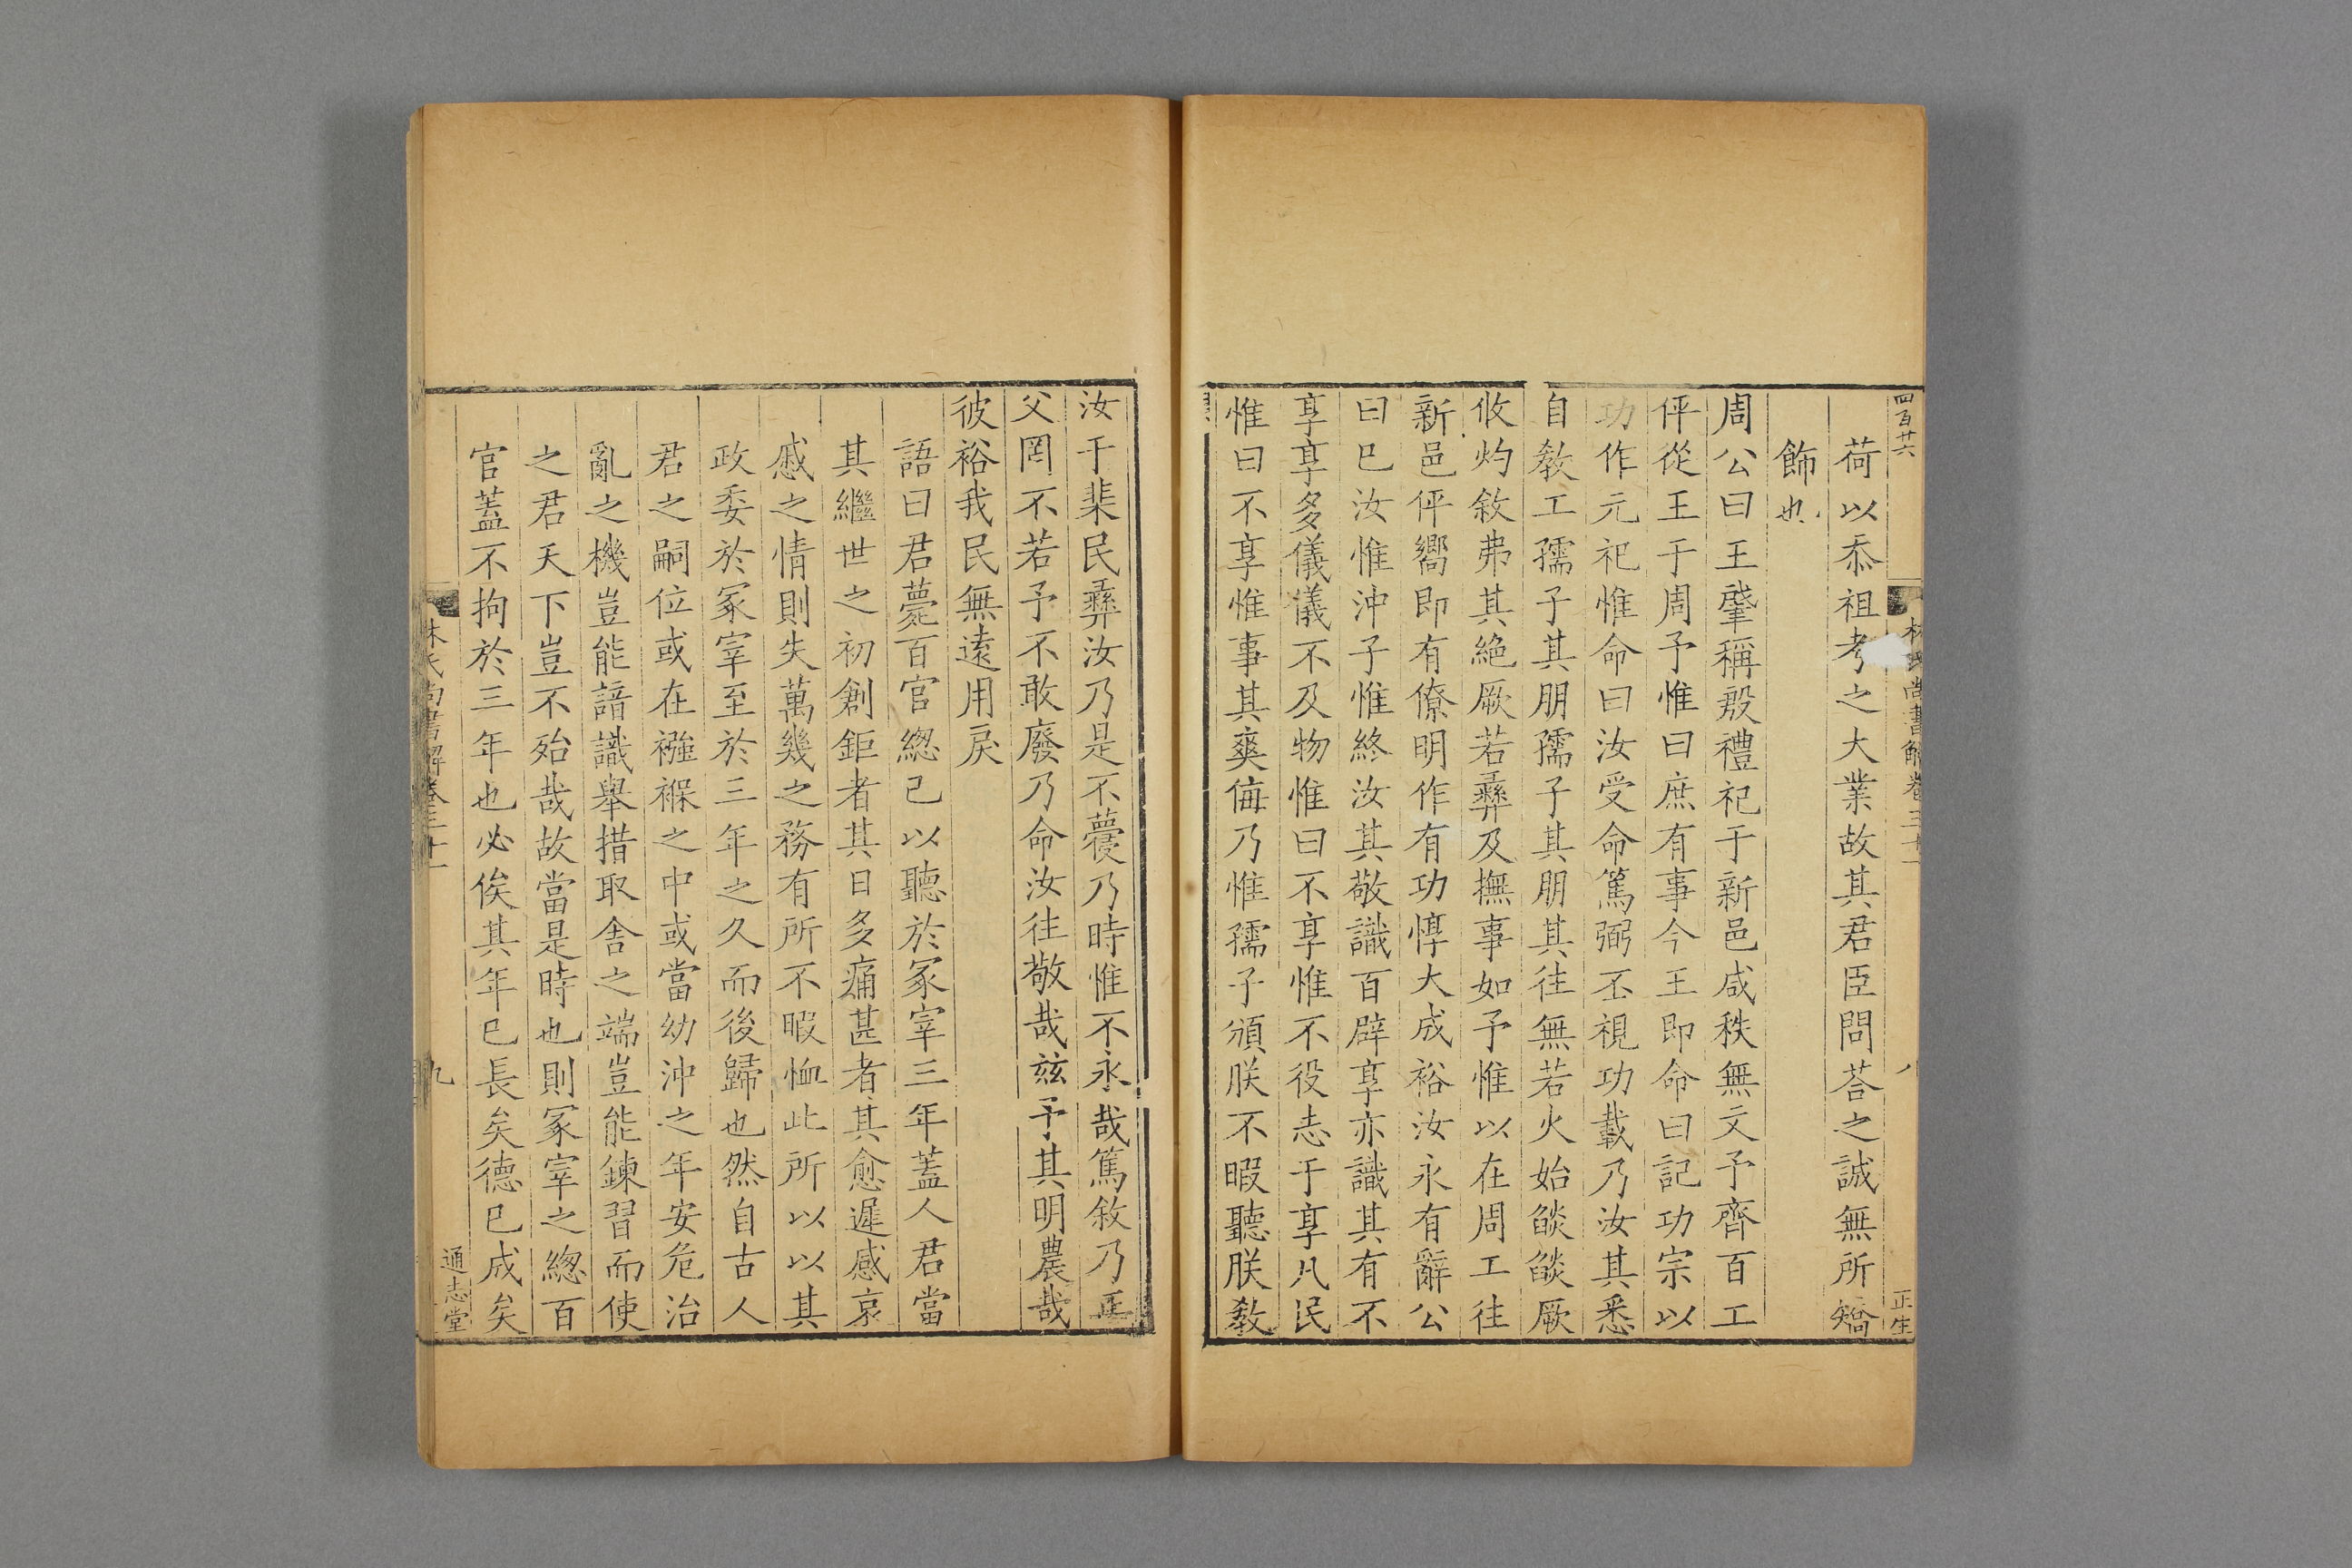 四百廿六
林氏尚書解卷三十一
八
正生
荷以忝祖考之大業故其君臣問荅之誠無所矯
飾也
周公曰王肇稱殷禮祀于新邑咸秩無文予齊百工
伻從王于周予惟曰庶有事今王即命曰記功宗以
功作元祀惟命曰汝受命篤弼丕視功載乃汝其悉
自教工孺子其朋孺子其朋其往無若火始燄燄厥
攸灼敘弗其絶厥若彞及撫事如予惟以在周工往
新邑伻嚮即有僚明作有功惇大成裕汝永有辭公
曰已汝惟沖子惟終汝其敬識百辟享亦識其有不
享享多儀儀不及物惟曰不享惟不役志于享凡民
惟曰不享惟事其爽侮乃惟孺子頒朕不暇聽朕教
汝于棐民彞汝乃是不蘉乃時惟不永哉篤敘乃正
父罔不若予不敢廢乃命汝往敬哉茲予其明農哉
彼裕我民無遠用戾
語曰君薨百官緫己以聽於冢宰三年蓋人君當
其繼世之初創鉅者其日多痛甚者其愈遲感哀
慼之情則失萬幾之務有所不暇恤此所以以其
政委於冢宰至於三年之久而後歸也然自古人
君之嗣位或在襁褓之中或當幼沖之年安危治
亂之機豈能諳識舉措取舍之端豈能鍊習而使
之君天下豈不殆哉故當是時也則冢宰之緫百
官蓋不拘於三年也必俟其年已長矣德已成矣
林氏尚書解卷三十一
九
通志堂